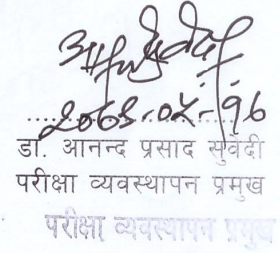 २०६३.०५.१६
डा. आनन्द प्रसाद सुवेदी
परीक्षा व्यवस्थापन प्रमुख
परीक्षा व्यवस्थापन प्रमुख